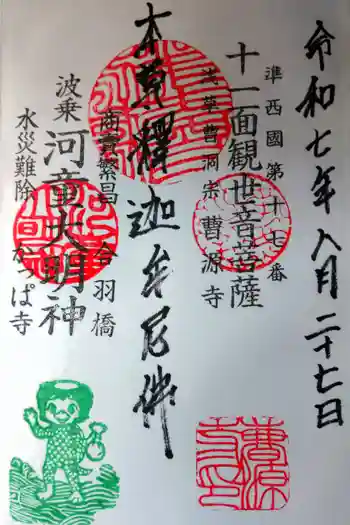 令和七年八月二十七日
準西國第十七番
十一面観世音菩薩
浅草曹洞宗 曹源寺
本尊釋迦牟尼佛
商賣繁昌 合羽橋
波乗 河童大明神
水災難除 かっぱ寺
曹源寺印